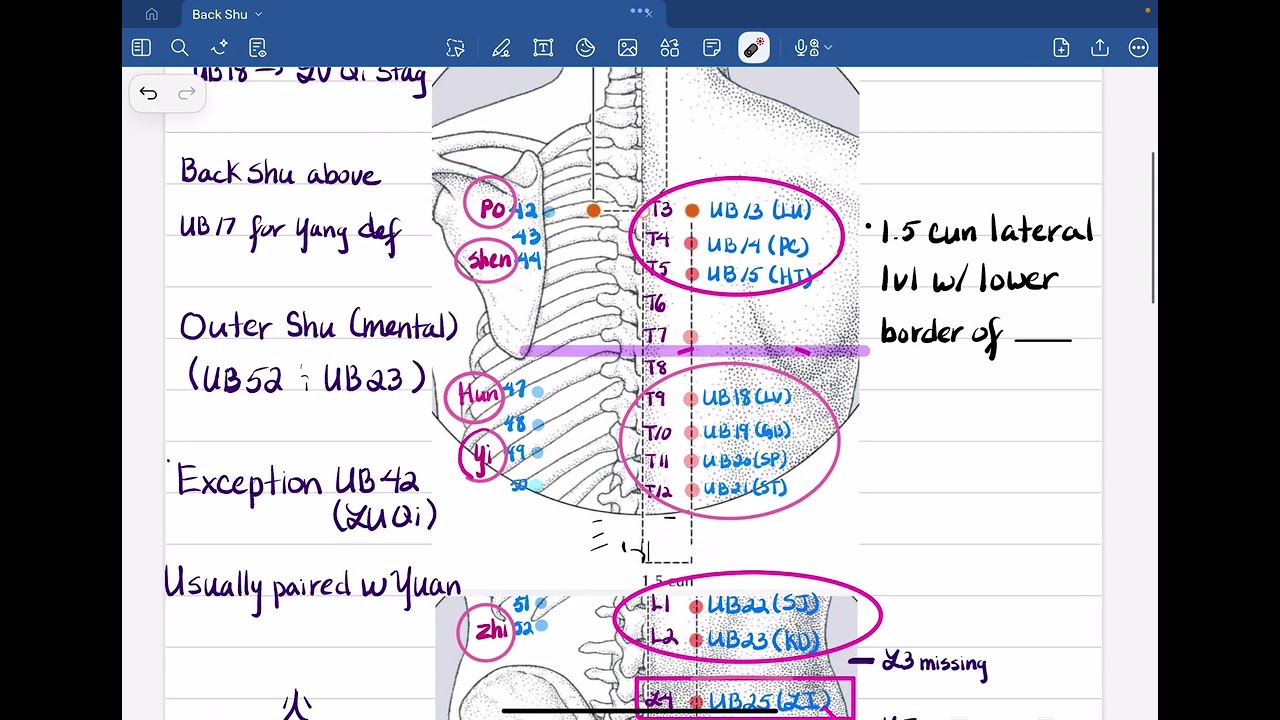 Back Shu
UB18 → LV Qi stag
Back Shu above
UB17 for Yang def
Outer Shu (mental)
(UB52 : UB23)
Exception UB42
(LU Qi)
Usually paired w Yuan
Po 42
43
Shen 44
Hun 47
48
Yi 49
50
51
Zhi 52
T3 UB13 (LU)
T4 UB14 (PC)
T5 UB15 (HT)
T6
T7
T8
T9 UB18 (LV)
T10 UB19 (GB)
T11 UB20 (SP)
T12 UB21 (ST)
1.5 cun
L1 UB22 (SJ)
L2 UB23 (KD)
L4 UB25 (LI)
• 1.5 cun lateral
lvl w/ lower
border of ___
— L3 missing